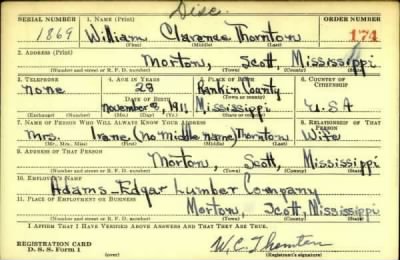 Disc.
SERIAL NUMBER 1. NAME (Print) ORDER NUMBER
1869 William Clarence Thornton 174
(First) (Middle) (Last)
2. ADDRESS (Print)
Morton, Scott, Mississippi
(Number and street or R. F. D. number) (Town) (County) (State)
3. TELEPHONE 4. AGE IN YEARS 5. PLACE OF BIRTH 6. COUNTRY OF CITIZENSHIP
none 28 Rankin County
DATE OF BIRTH (Town or county)
November 8, 1911 Mississippi U.S.A
(Exchange) (Number) (Mo.) (Day) (Yr.) (State or country)
7. NAME OF PERSON WHO WILL ALWAYS KNOW YOUR ADDRESS 8. RELATIONSHIP OF THAT PERSON
Mrs. Irene (no middle name) Thornton Wife
(Mr., Mrs., Miss) (First) (Middle) (Last)
9. ADDRESS OF THAT PERSON
Morton, Scott, Mississippi
(Number and street or R. F. D. number) (Town) (County) (State)
10. EMPLOYER'S NAME
Adams-Edgar Lumber Company
11. PLACE OF EMPLOYMENT OR BUSINESS
Morton, Scott, Mississippi
(Number and street or R. F. D. number) (Town) (County) (State)
I AFFIRM THAT I HAVE VERIFIED ABOVE ANSWERS AND THAT THEY ARE TRUE.
REGISTRATION CARD
D. S. S. Form 1 (over) W.C. Thornton
(Registrant's signature)